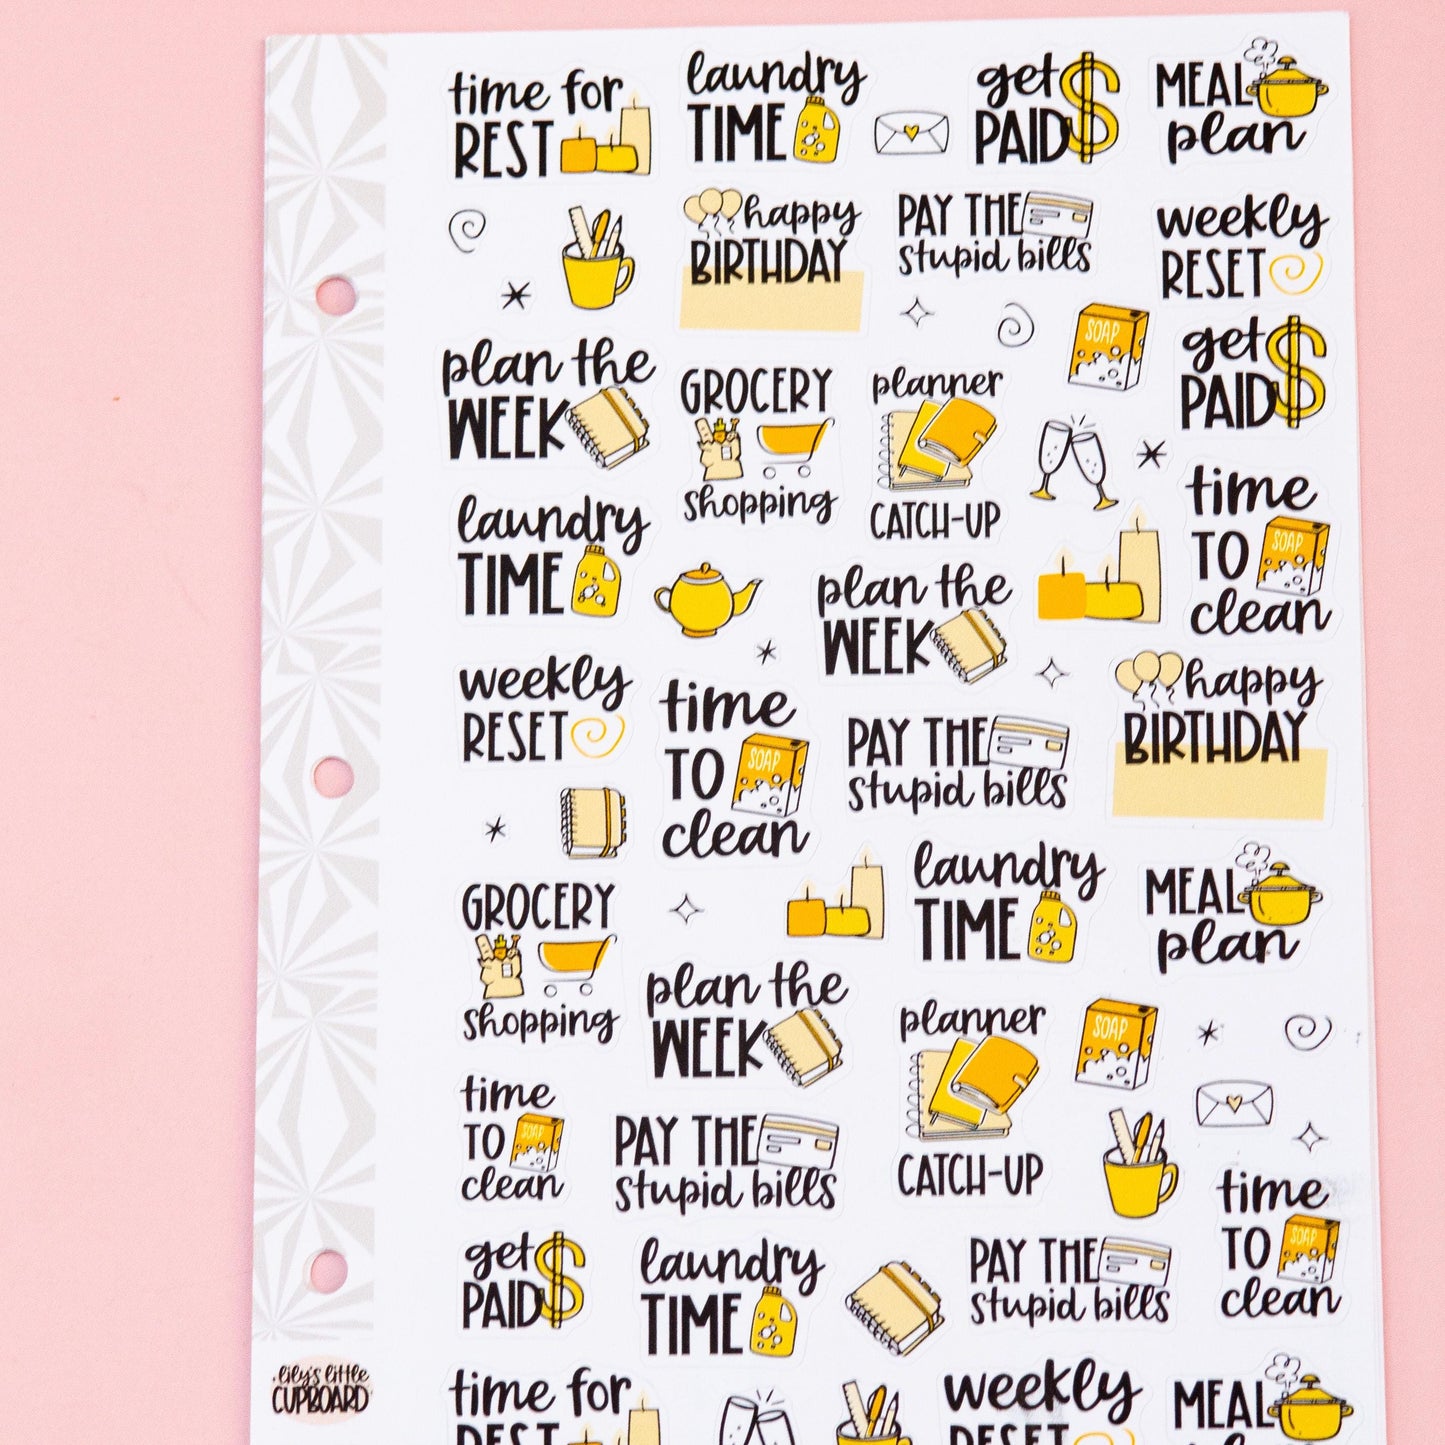 time for
REST
laundry
TIME
get
PAID
$
MEAL
plan
happy
BIRTHDAY
PAY THE
stupid bills
weekly
RESET
SOAP
plan the
WEEK
GROCERY
shopping
planner
CATCH-UP
get
PAID
$
laundry
TIME
plan the
WEEK
time
TO
SOAP
clean
weekly
RESET
time
TO
SOAP
clean
PAY THE
stupid bills
happy
BIRTHDAY
GROCERY
shopping
laundry
TIME
MEAL
plan
plan the
WEEK
planner
CATCH-UP
SOAP
time
TO
SOAP
clean
PAY THE
stupid bills
time
TO
SOAP
clean
get
PAID
$
laundry
TIME
PAY THE
stupid bills
lily's little
CUPBOARD
time for
REST
weekly
RESET
MEAL